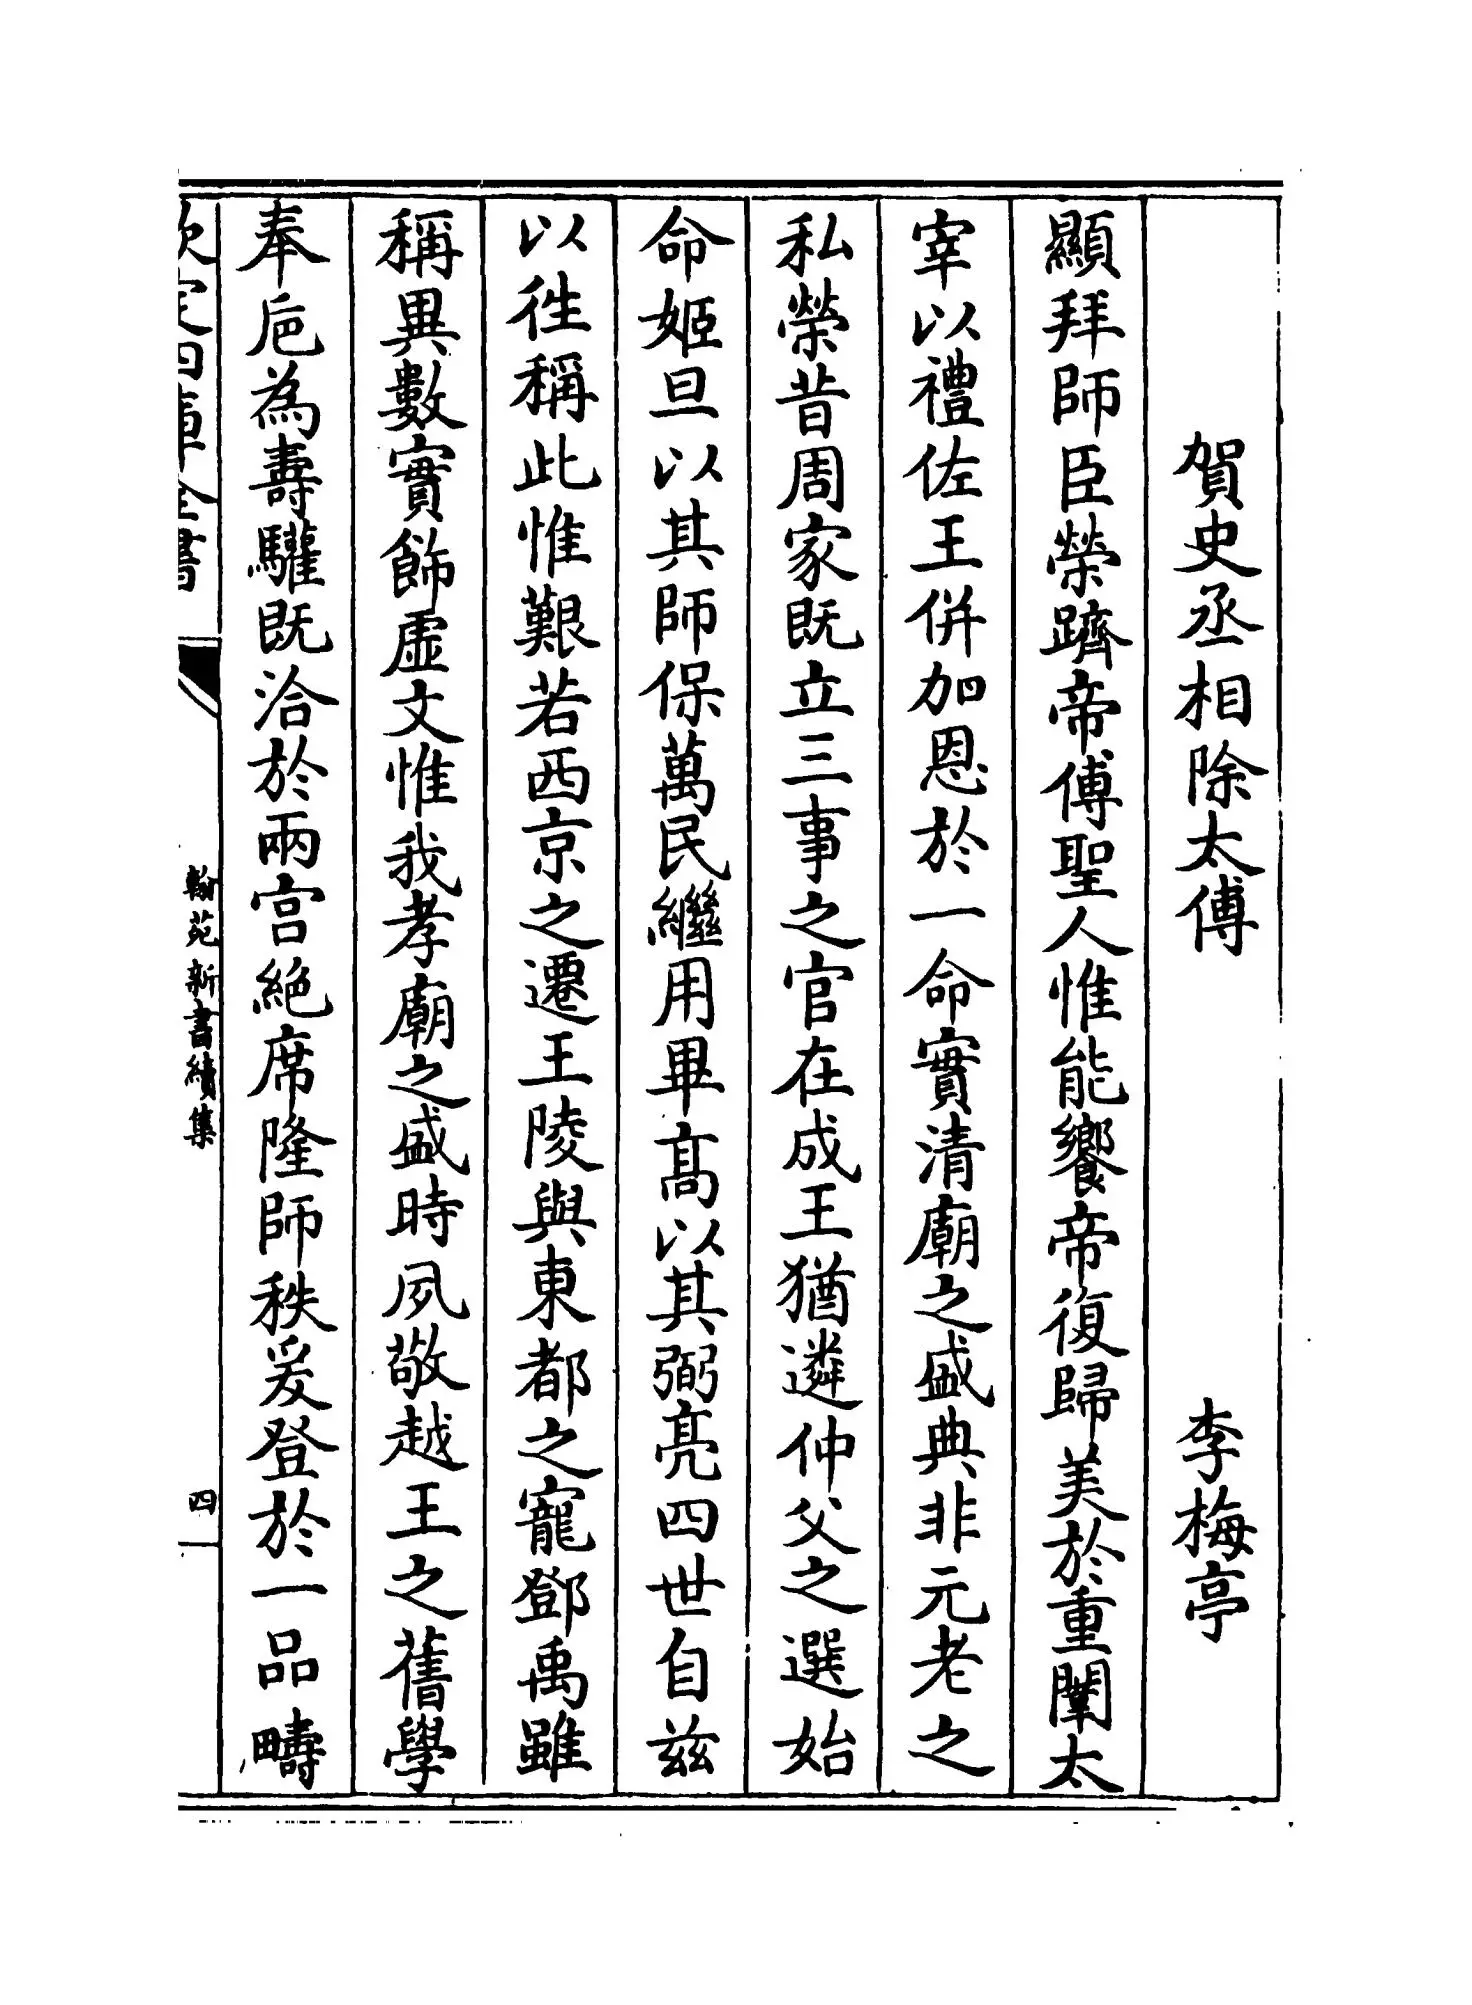 賀史丞相除太傅 李梅亭
顯拜師臣榮躋帝傅聖人惟能饗帝復歸美於重闈太
宰以禮佐王併加恩於一命實清廟之盛典非元老之
私榮昔周家既立三事之官在成王猶遴仲父之選始
命姬旦以其師保萬民繼用畢髙以其弼亮四世自兹
以徃稱此惟艱若西京之遷王陵與東都之寵鄧禹雖
稱異數實飾虛文惟我孝廟之盛時夙敬越王之舊學
奉巵為壽驩既洽於兩宫絶席隆師秩爰登於一品疇
欽定四庫全書
翰苑新書續集
四